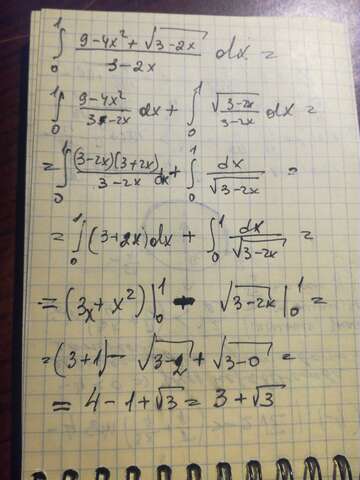 ∫₀¹ (9-4x²+√(3-2x))/(3-2x) dx =
∫₀¹ (9-4x²)/(3-2x) dx + ∫₀¹ √(3-2x)/(3-2x) dx =
= ∫₀¹ (3-2x)(3+2x)/(3-2x) dx + ∫₀¹ dx/√(3-2x) =
= ∫₀¹ (3+2x)dx + ∫₀¹ dx/√(3-2x) =
= (3x+x²)|₀¹ - √(3-2x)|₀¹ =
= (3+1) - √(3-2) + √(3-0) =
= 4-1+√3 = 3+√3